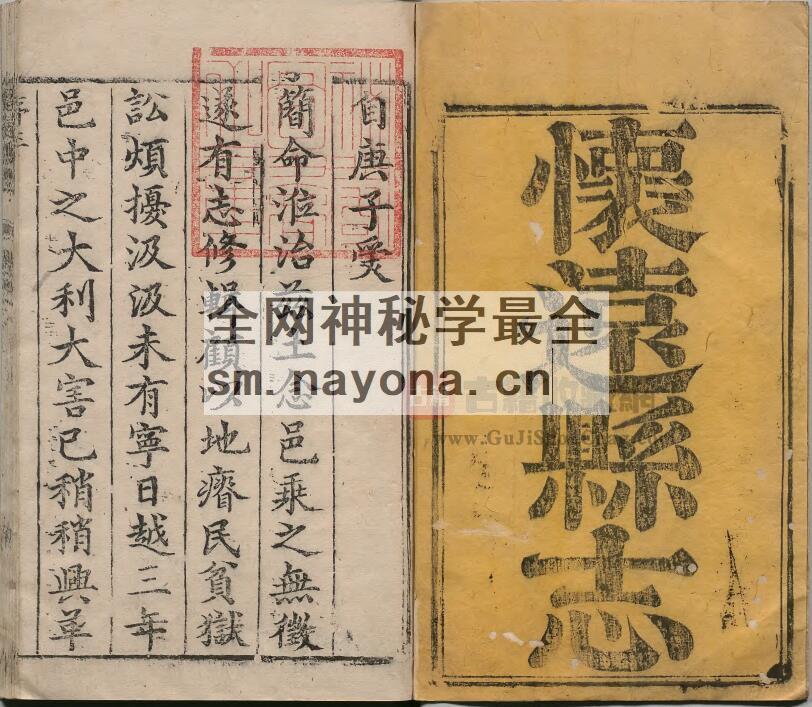 懷遠縣志
自庚子受
簡命涖治茲土念邑乗之無徵
遂有志修輯顧以地瘠民貧獄
訟煩擾汲汲未有寧日越三年
邑中之大利大害已稍稍興革
全网神秘学最全
sm.nayona.cn